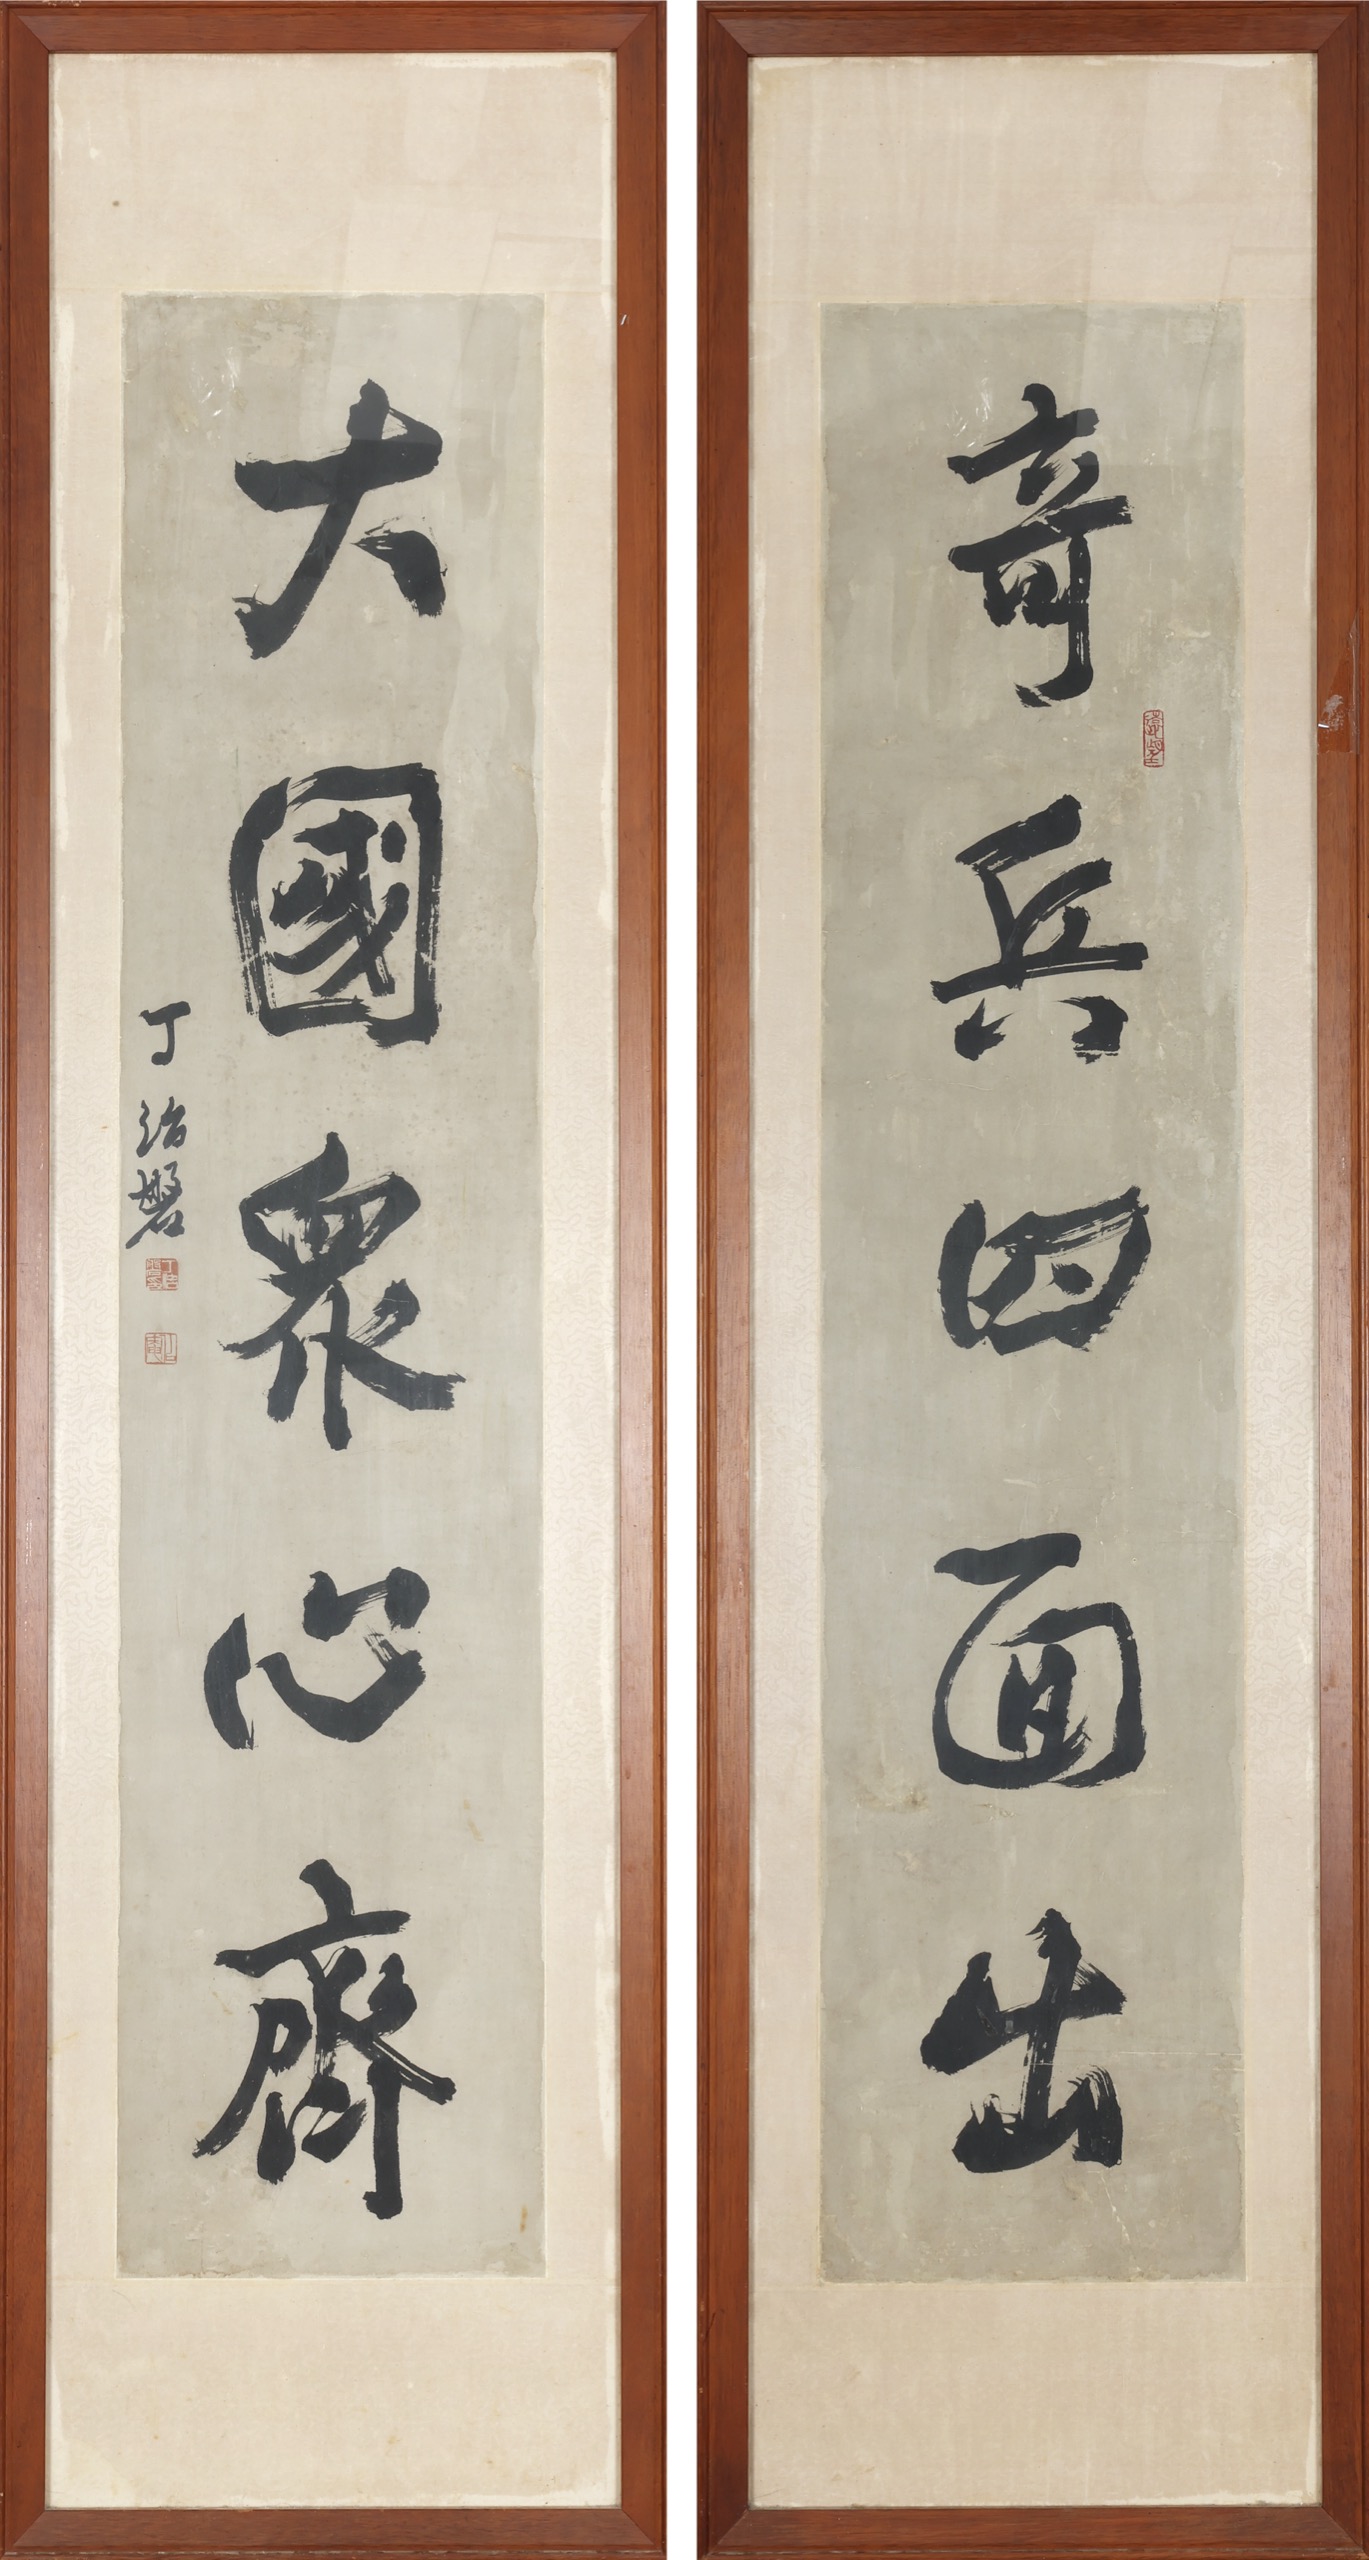 奇兵四面出
大國衆心齊
丁治磐